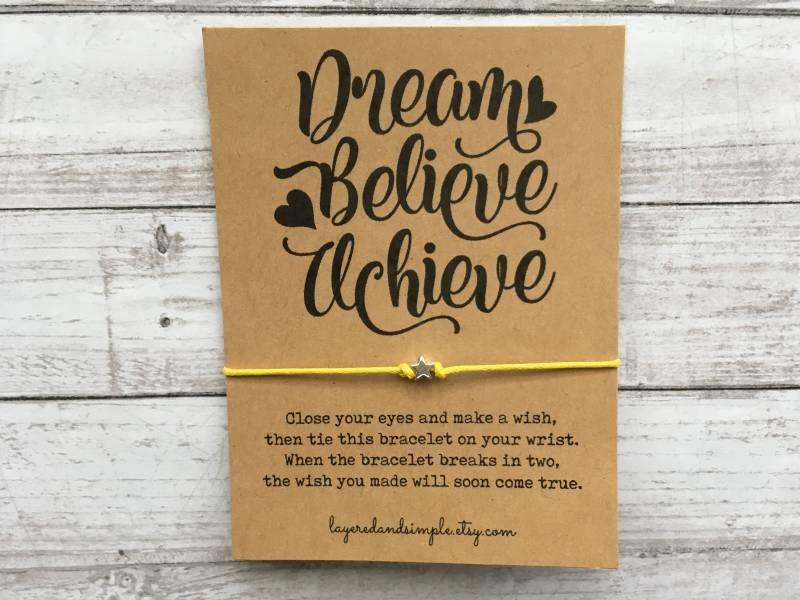 Dream
Believe
Achieve
Close your eyes and make a wish,
then tie this bracelet on your wrist.
When the bracelet breaks in two,
the wish you made will soon come true.
layeredandsimple.etsy.com